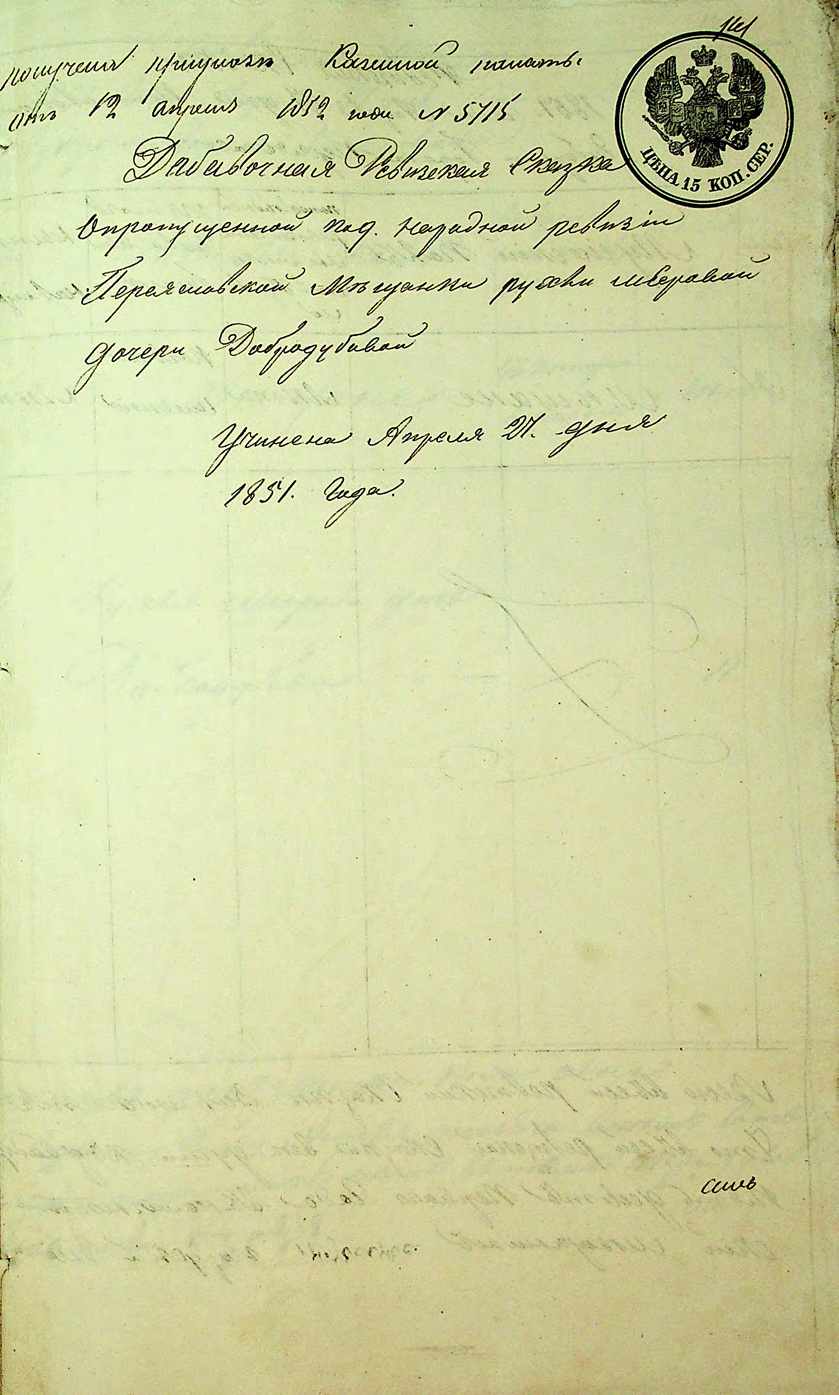 141
получена при указе Казенной палаты
отъ 12 апреля 1852 года N 5715
ЦѢНА 15 КОП. СЕР.
Дабавочная Ревизская Сказка
Опропущенной под. народной ревизіи
Переяславской Мѣщанки рухли
дочери Добродубивой
Учинена Апреля 27. дня
1851. Года.